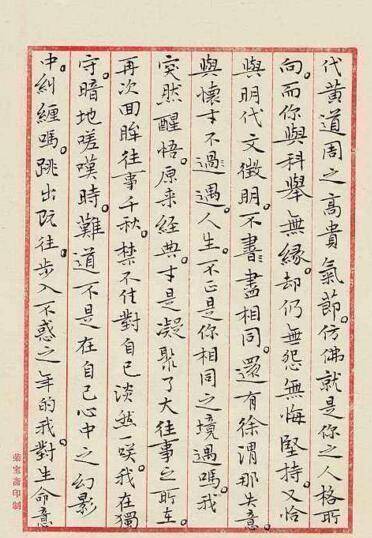 代黃道周之高貴氣節。仿佛就是你之人格所
向。而你與科舉無緣。却仍無怨無悔堅持。又恰
與明代文徵明。不書盡相同。還有徐渭那失意。
與懷才不過遇。人生。不正是你相同之境遇嗎。我
突然醒悟。原来經典。才是凝聚了大往事之所在。
再次回眸往事千秋。禁不住對自己淡然一咲。我在獨
守暗地嗟嘆時。難道不是在自己心中之幻影
中糾纏嗎。跳出既往。步入不惑之年的我。對生命意
榮宝斋印制